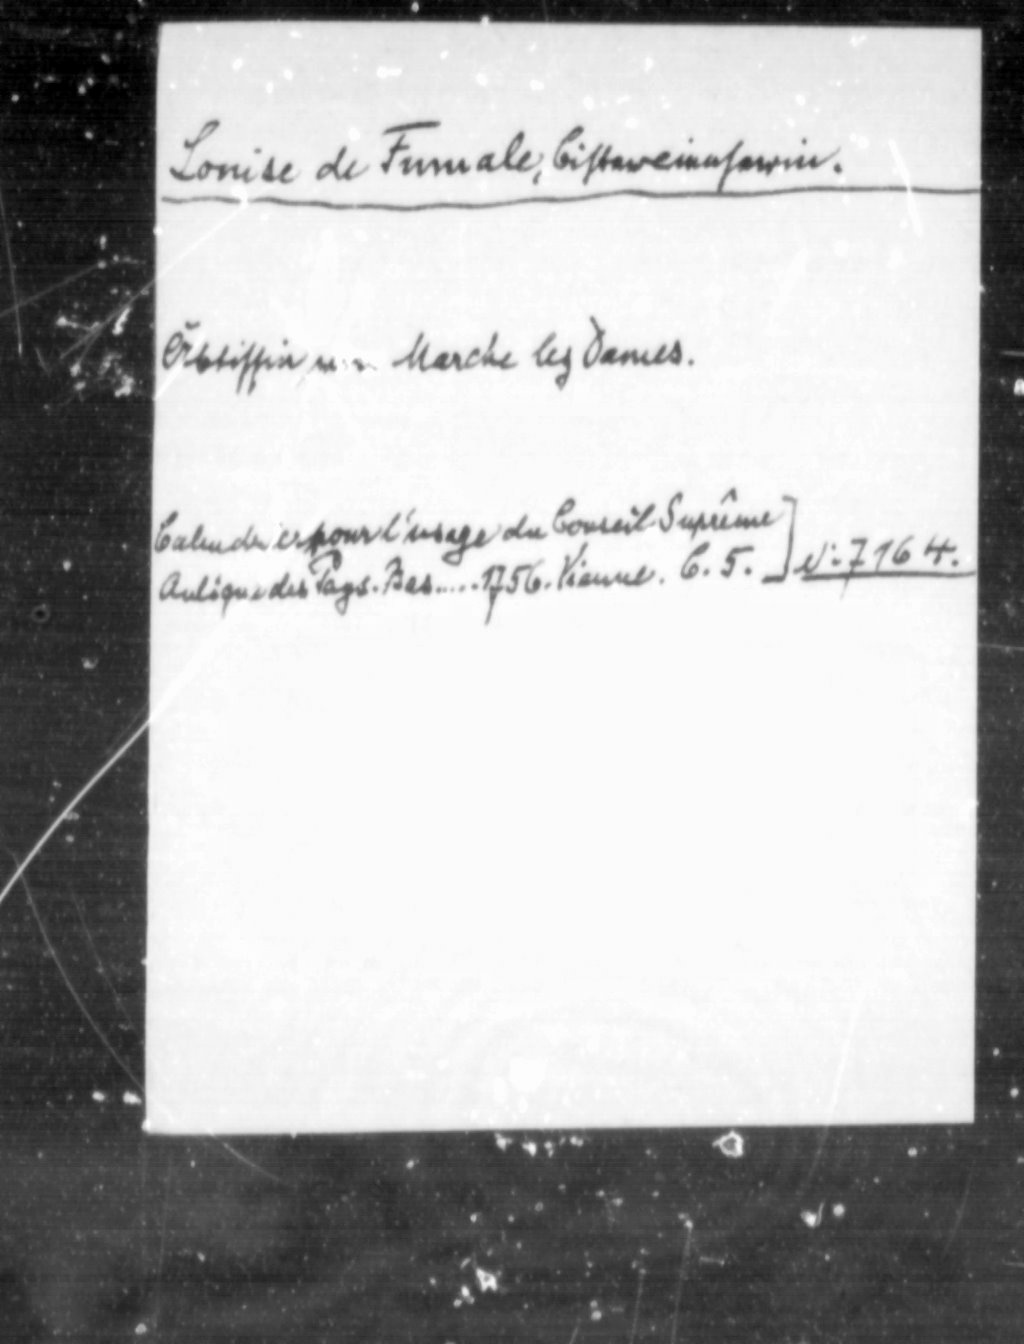 Louise de Fumale, Cistercienserin.
Äbtissin von Marche lez Dames.
Calendrier pour l'usage du Conseil Suprême
Aulique des Pays-Bas.....1756. Vienne. C. 5. ] N:7164.